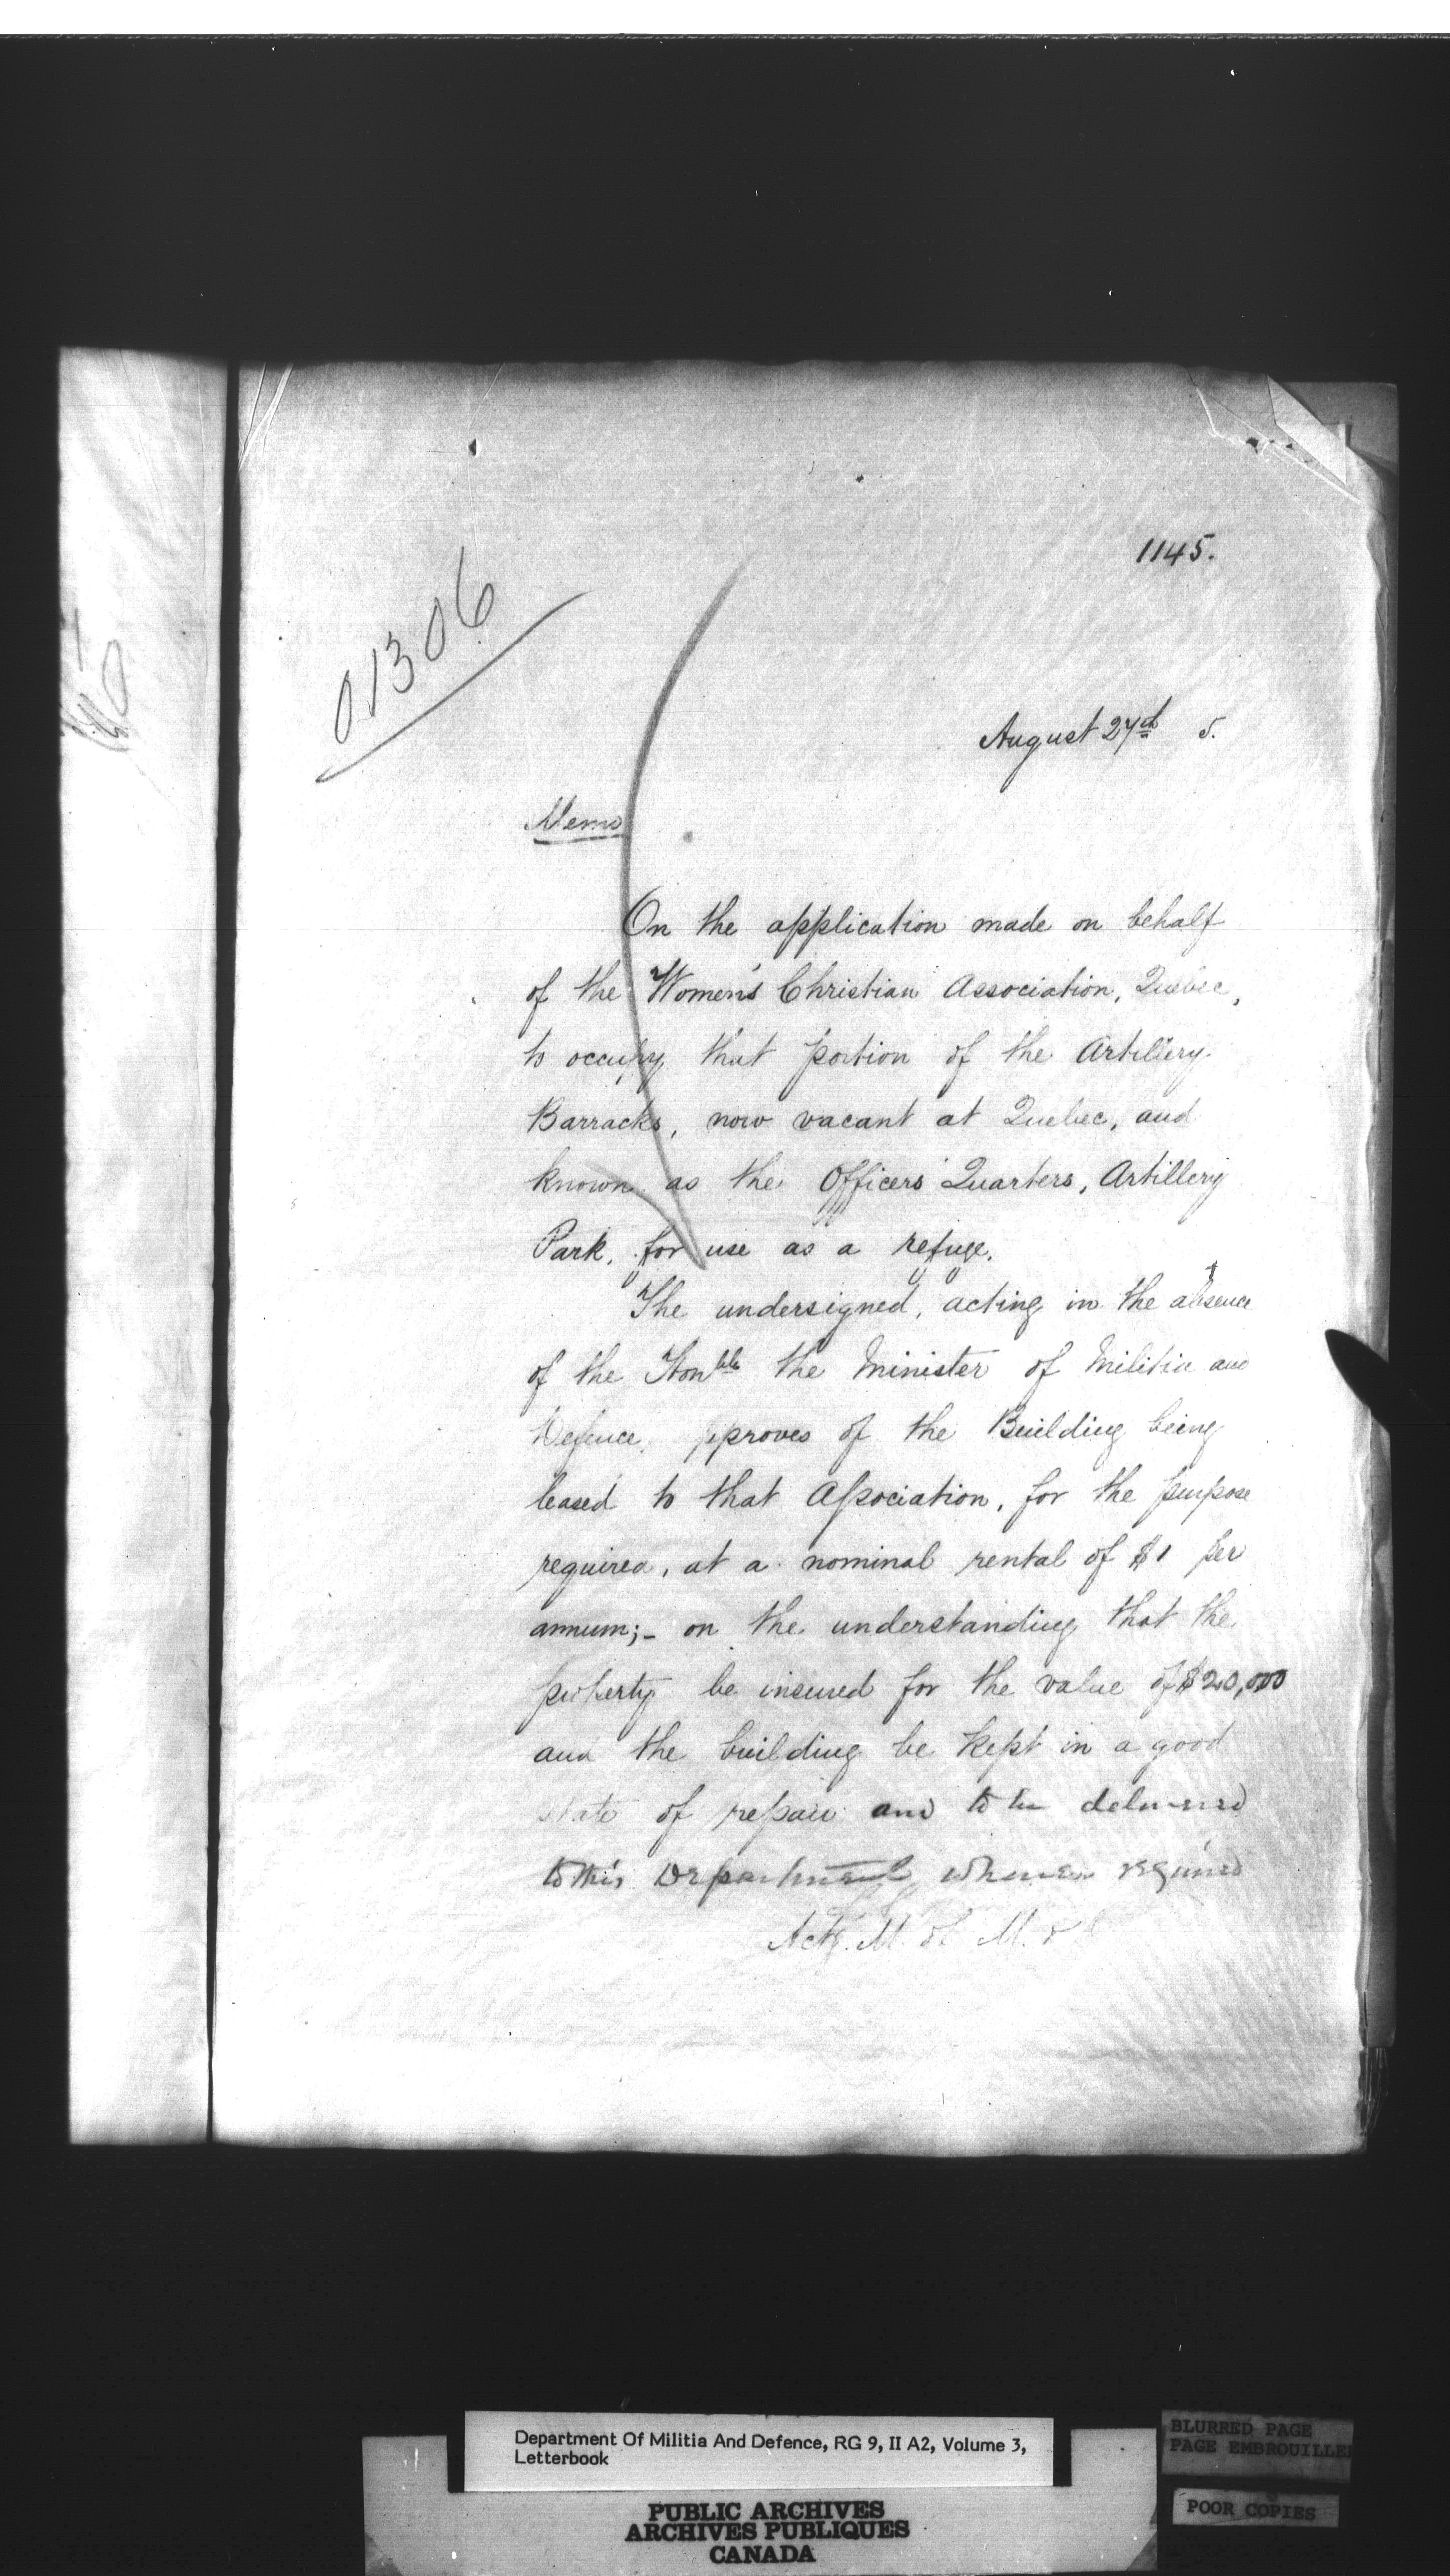 1145.
01306
August 27th 5.
Memo
On the application made on behalf
of the Women's Christian Association, Quebec,
to occupy that portion of the Artillery
Barracks, now vacant at Quebec, and
known as the Officers' Quarters, Artillery
Park, for use as a refuge.
The undersigned, acting in the absence
of the Honble the Minister of Militia and
Defence, pproves of the Building being
leased to that Association, for the purpose
required, at a nominal rental of $1 per
annum;- on the understanding that the
property be insured for the value of $20,000
and the building be kept in a good
state of repair and to be delivered
to this Department whenever required
Actg. M. of M. &
Department Of Militia And Defence, RG 9, II A2, Volume 3,
Letterbook
BLURRED PAGE
PAGE EMBROUILLEE
POOR COPIES
PUBLIC ARCHIVES
ARCHIVES PUBLIQUES
CANADA